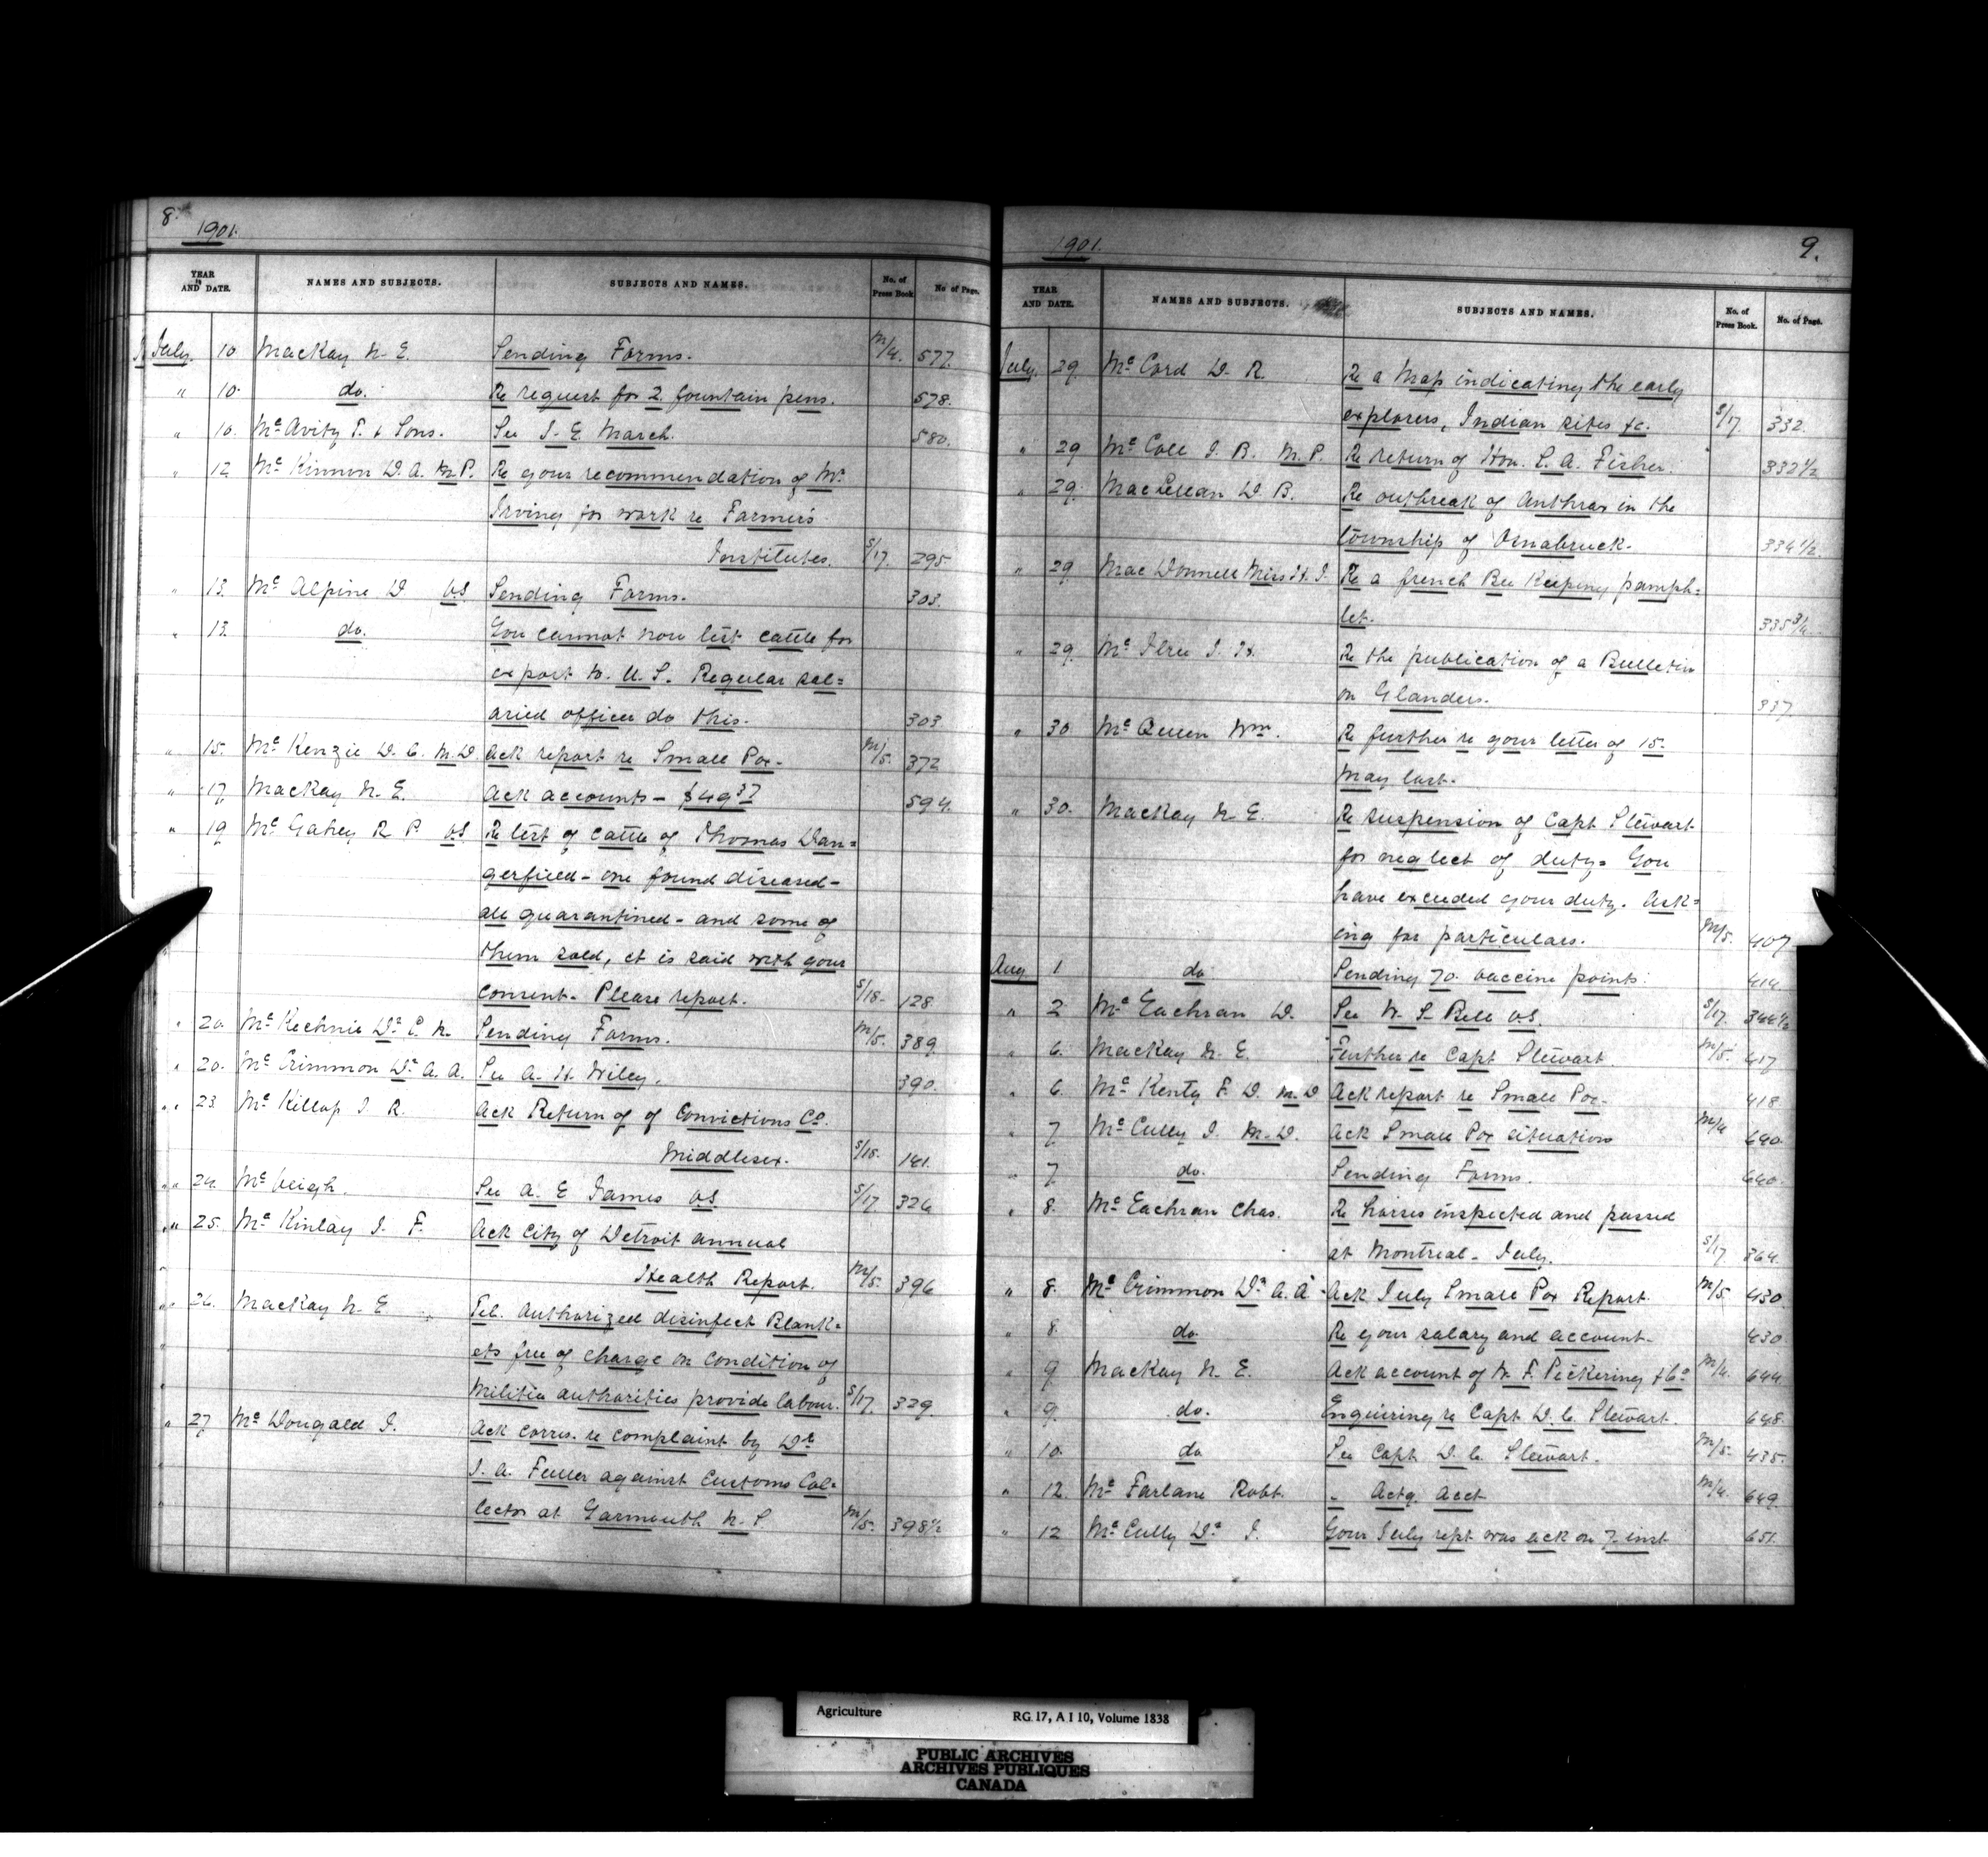 8.
1901.
YEAR AND DATE. NAMES AND SUBJECTS. SUBJECTS AND NAMES. No. of Press Book No of Page.
July. 10 MacKay N. E. Sending Forms. M/4. 577.
" 10. do. Re request for 2 fountain pens. 578.
" 10. Mc Avity T. & Sons. See J. E. March. 580.
" 12 Mc Kinnon D. A. M.P. Re your recommendation of Mr
Irving for work re Farmers
Institutes. S/17. 295
" 13. Mc Alpine D V.S. Sending Forms. 303.
" 13. do. You cannot now test cattle for
export to. U. S. Regular sal=
aried officer do this. 303
" 15. Mc Kenzie D. C. M.D. Ack report re Small Pox- M/5. 372
" 17. MacKay N. E. Ack accounts - $49 37 594.
" 19 Mc Gahey R. P. V.S. Re test of cattle of Thomas Dan=
gerfield - one found diseased -
all quarantined - and some of
them sold, it is said with your
consent - Please report. S/18- 128
" 20. Mc Kechnie Dr E. N. Sending Forms. M/5. 389
" 20. Mc Crimmon Dr A. A. See A. H. Wiley. 390.
" 23. Mc Killop J. R. Ack Return of of Convictions Co.
Middlesex. S/18. 141.
" 24. Mc Veigh. See A. E James V.S. S/17. 326
" 25. Mc Kinlay J. F. Ack City of Detroit annual
Health Report. M/5. 396
" 26. MacKay N. E Tel. Authorized disinfect Blank=
ets free of charge on condition of
Militia authorities provide labour. S/17. 329.
" 27 Mc Dougald J. Ack corres. re complaint by Dr
J. A. Fuller against Customs Col=
lector at Yarmouth N. S. M/5. 398½
1901. 9.
YEAR AND DATE. NAMES AND SUBJECTS. SUBJECTS AND NAMES. No. of Press Book. No. of Page.
July. 29 Mc Cord D. R. Re a Map indicating the early
explorers, Indian sites &c. S/17. 332.
" 29 Mc Coll J. B. M. P. Re return of Hon. S. A. Fisher. 332½
" 29. MacLellan D. B. Re outbreak of Anthrax in the
township of Osnabruck. 334½
" 29 Mac Donnell Miss H. J. Re a french Bee Keeping pamph=
let. 335¾
" 29. Mc Ilree J. H. Re the publication of a Bulletin
on Glanders. 337
" 30 Mc Queen Wm. Re further re your letter of 15.
May last.
" 30. MacKay N. E. Re suspension of Capt Stewart
for neglect of duty. You
have exceeded your duty. Ask=
ing for particulars. M/5. 407
Aug 1 do Sending 70. vaccine points. 414.
" 2 Mc Eachran D. See N. S Bell V.S. S/17. 344½
" 6. MacKay N. E. Further re Capt Stewart M/5. 417
" 6. Mc Kenty F. D. M.D Ack report re Small Pox- 418.
" 7 Mc Cully J. M.D. Ack Small Pox situation M/4 640.
" 7 do. Sending Forms. 640.
" 8. Mc Eachran Chas. Re horses inspected and passed
at Montreal - July. S/17 364.
" 8. Mc Crimmon Dr A. A Ack July Small Pox Report. M/5. 430.
" 8. do Re your salary and account- 430
" 9 MacKay N. E. Ack account of W. F. Pickering & Co M/4. 644
" 9. do. Enquiring re Capt D. C. Stewart. 648.
" 10. do See Capt D. C. Stewart. M/5. 435.
" 12. Mc Farlane Robt. " Actg. Acct M/4. 649.
" 12 Mc Cully Dr J. Your July rept was ack on 7 inst 651.
Agriculture RG 17, A I 10, Volume 1838
PUBLIC ARCHIVES
ARCHIVES PUBLIQUES
CANADA